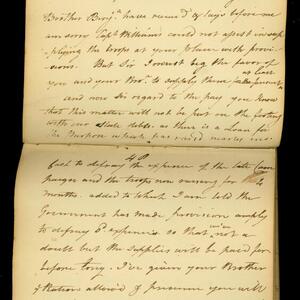 Brother Benjn have renewd of lays before me
am sorry Capt Williams could not assist in sup
plying the troops at your place with provi
sions. But Sir I must beg the favor of
you and your Bror to supply them at least
and now Sir regard to the pay you know
that this matter will not be put on the footing
with our State debts as there is a Loan for
the purpose which has raised
48
fact to defray the expence of the late Cam
paigns and the troops now raising for
months. added to which I am told the
Government has made provision amply
to defray expences so that not a
doubt but the supplies will be paid for
before long. I've given your Brother
Rations allow'd I presume you will